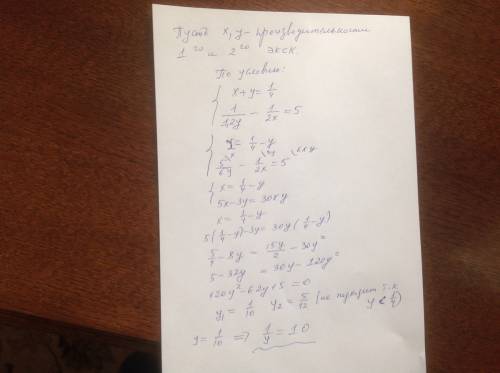 Пусть x, y - производительности
1го и 2го экск.
По условию:
x+y=1/4
1/1,2y - 1/2x = 5
x = 1/4 - y
5/6y - 1/2x = 5
x = 1/4 - y
5x - 3y = 30xy
x = 1/4 - y
5(1/4 - y) - 3y = 30y(1/4 - y)
5/4 - 8y = 15y/2 - 30y²
5 - 32y = 30y - 120y²
120y² - 62y + 5 = 0
y₁ = 1/10 y₂ = 5/12 (не подходит т.к. y < 1/4)
y = 1/10 => 1/y = 10